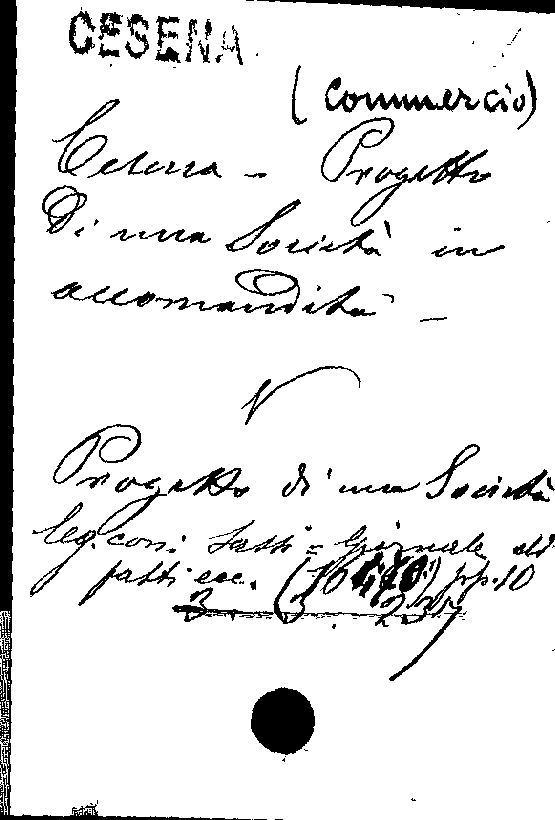 CESENA
(Commercio)
Cesena - Progetto
di una Società in
accomandità -
V
Progetto di una Società
leg. con: Fatti = Giornale di
fatti ecc. (10 pp. 10
3. 3. 237